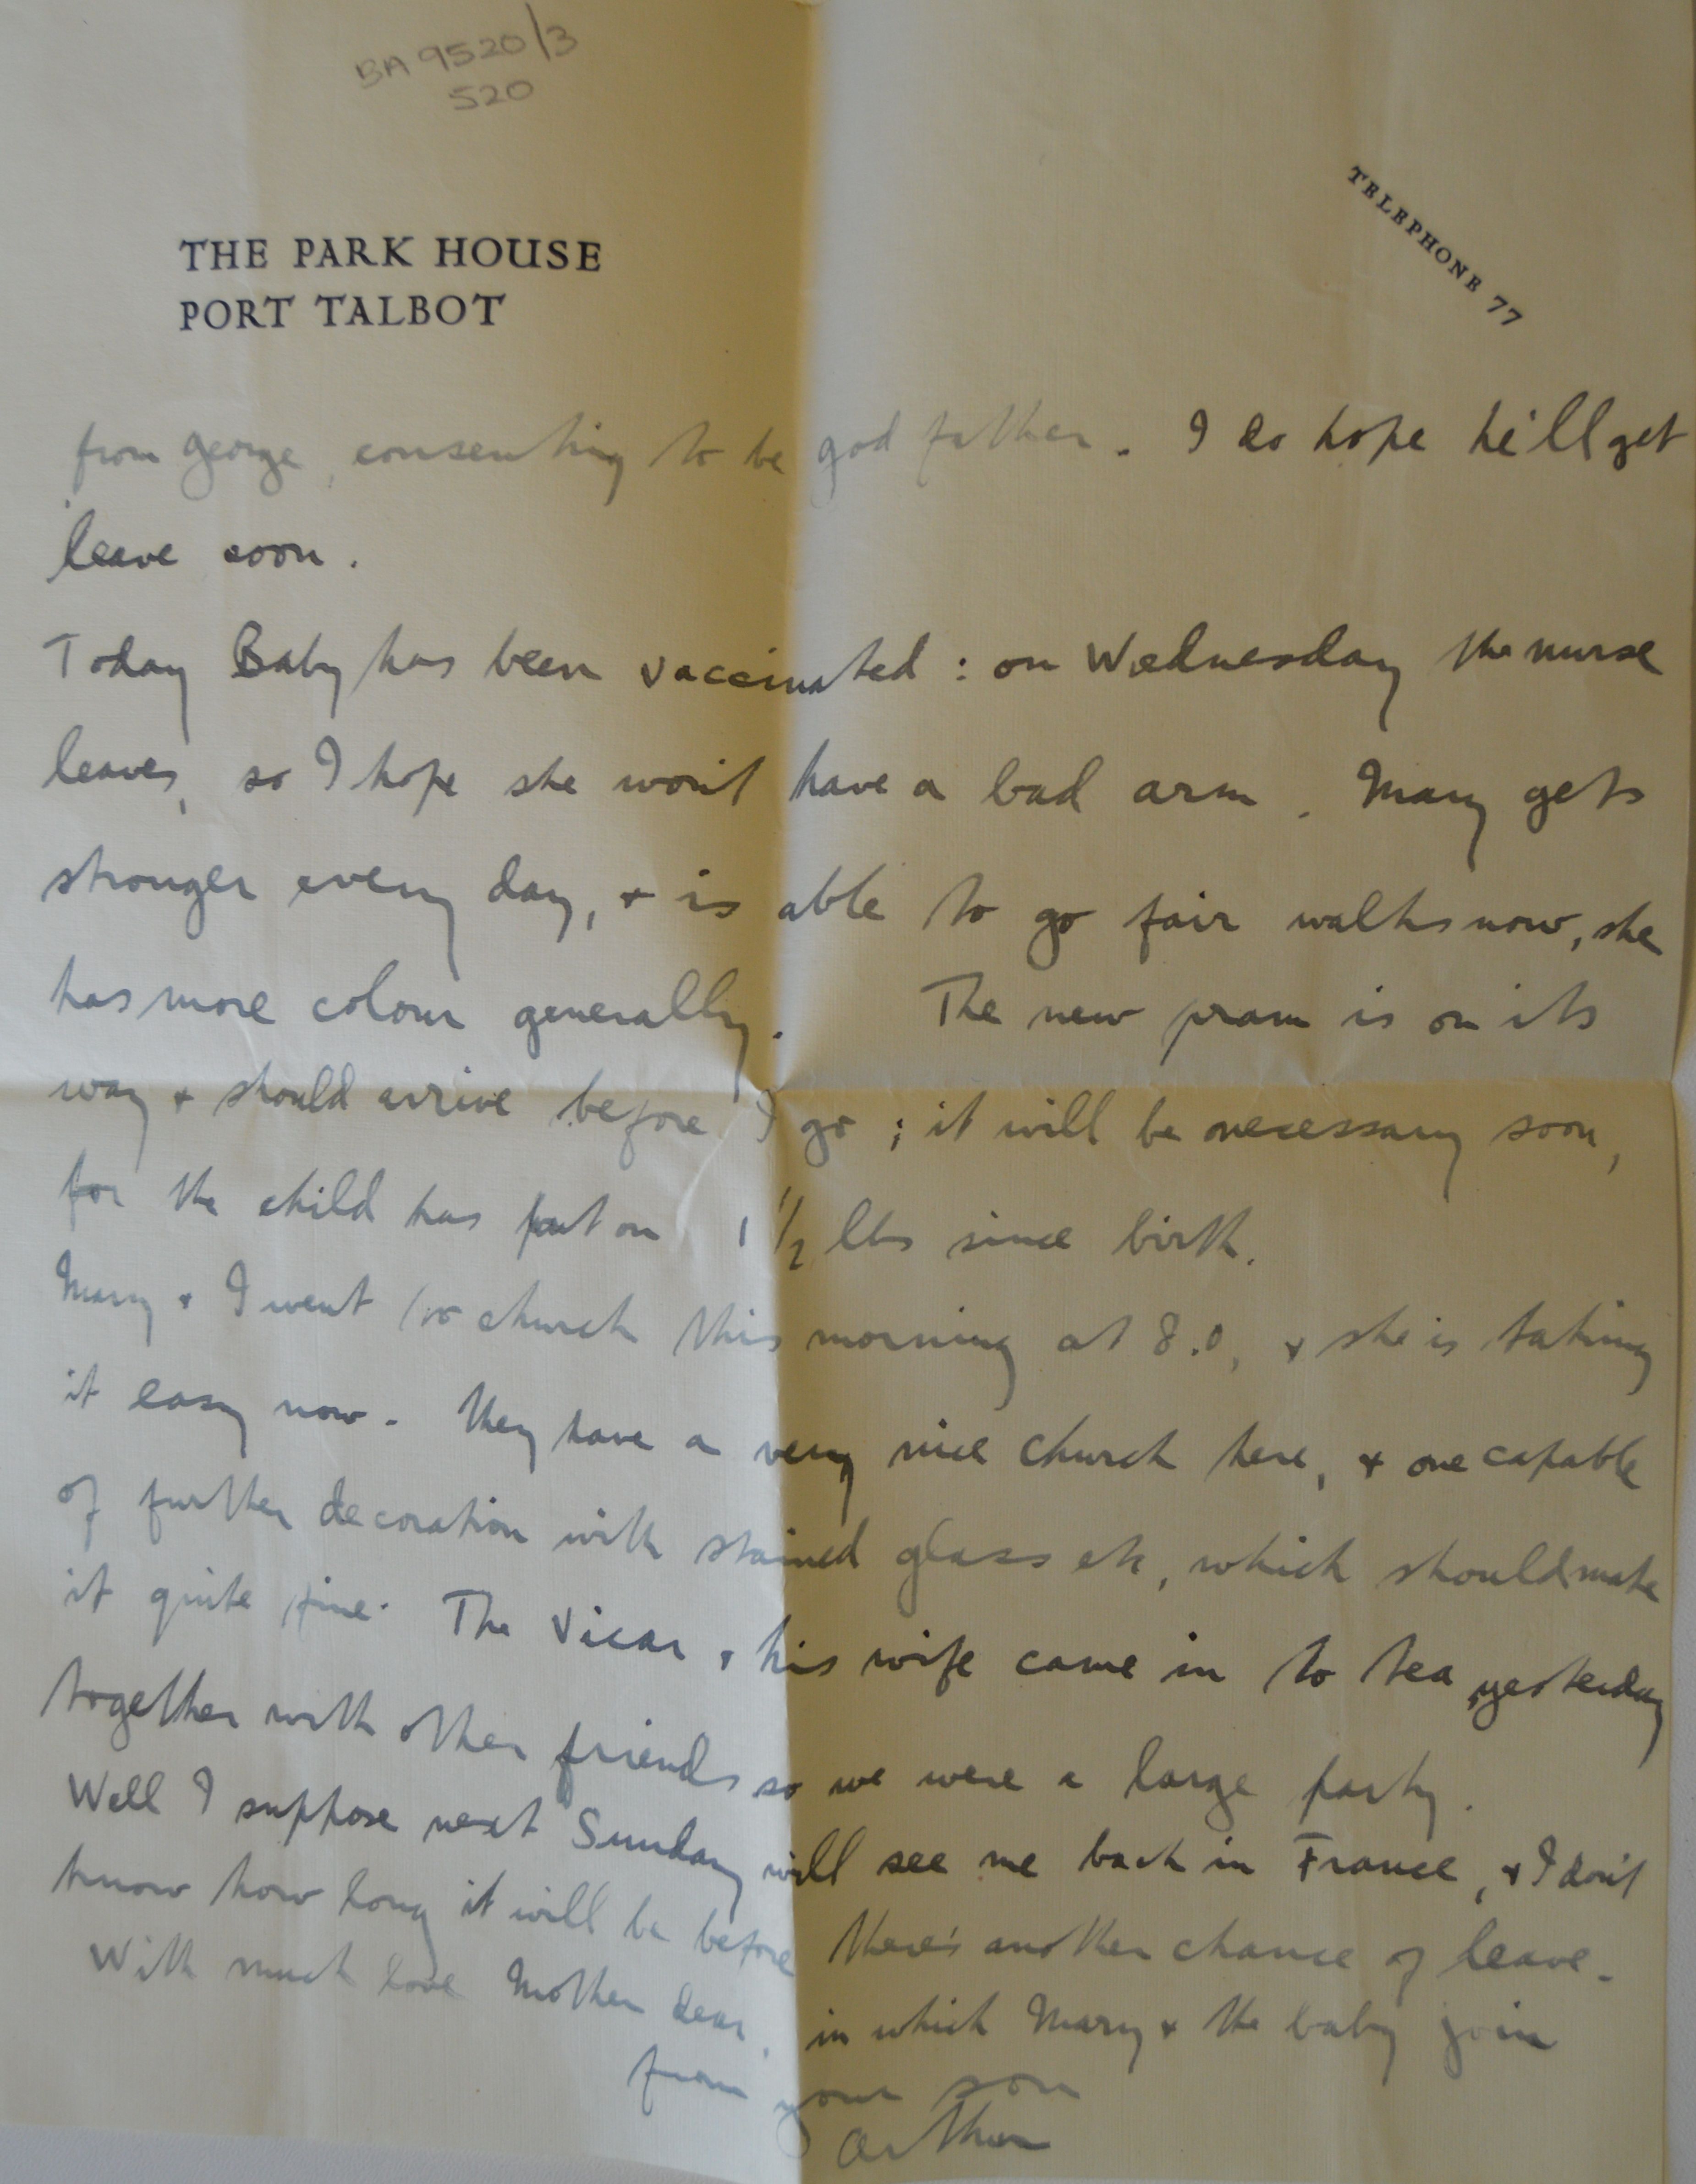 BA 9520/3
520
THE PARK HOUSE
PORT TALBOT
TELEPHONE 77
from George, consenting to be god father. I do hope he'll get
leave soon.
Today Baby has been vaccinated: on Wednesday the nurse
leaves, so I hope she won't have a bad arm. Mary gets
stronger every day, + is able to go fair walks now, she
has more colour generally. The new pram is on its
way + should arrive before I go; it will be necessary soon,
for the child has put on 1 1/2 lbs since birth.
Mary + I went to church this morning at 8.0, + she is taking
it easy now. They have a very nice church here, + one capable
of further decoration with stained glass etc, which should make
it quite fine. The Vicar + his wife came in to tea yesterday
together with other friends so we were a large party.
Well I suppose next Sunday will see me back in France, + I don't
know how long it will be before there's another chance of leave.
With much love Mother dear, in which Mary + the baby join
from your son
Arthur